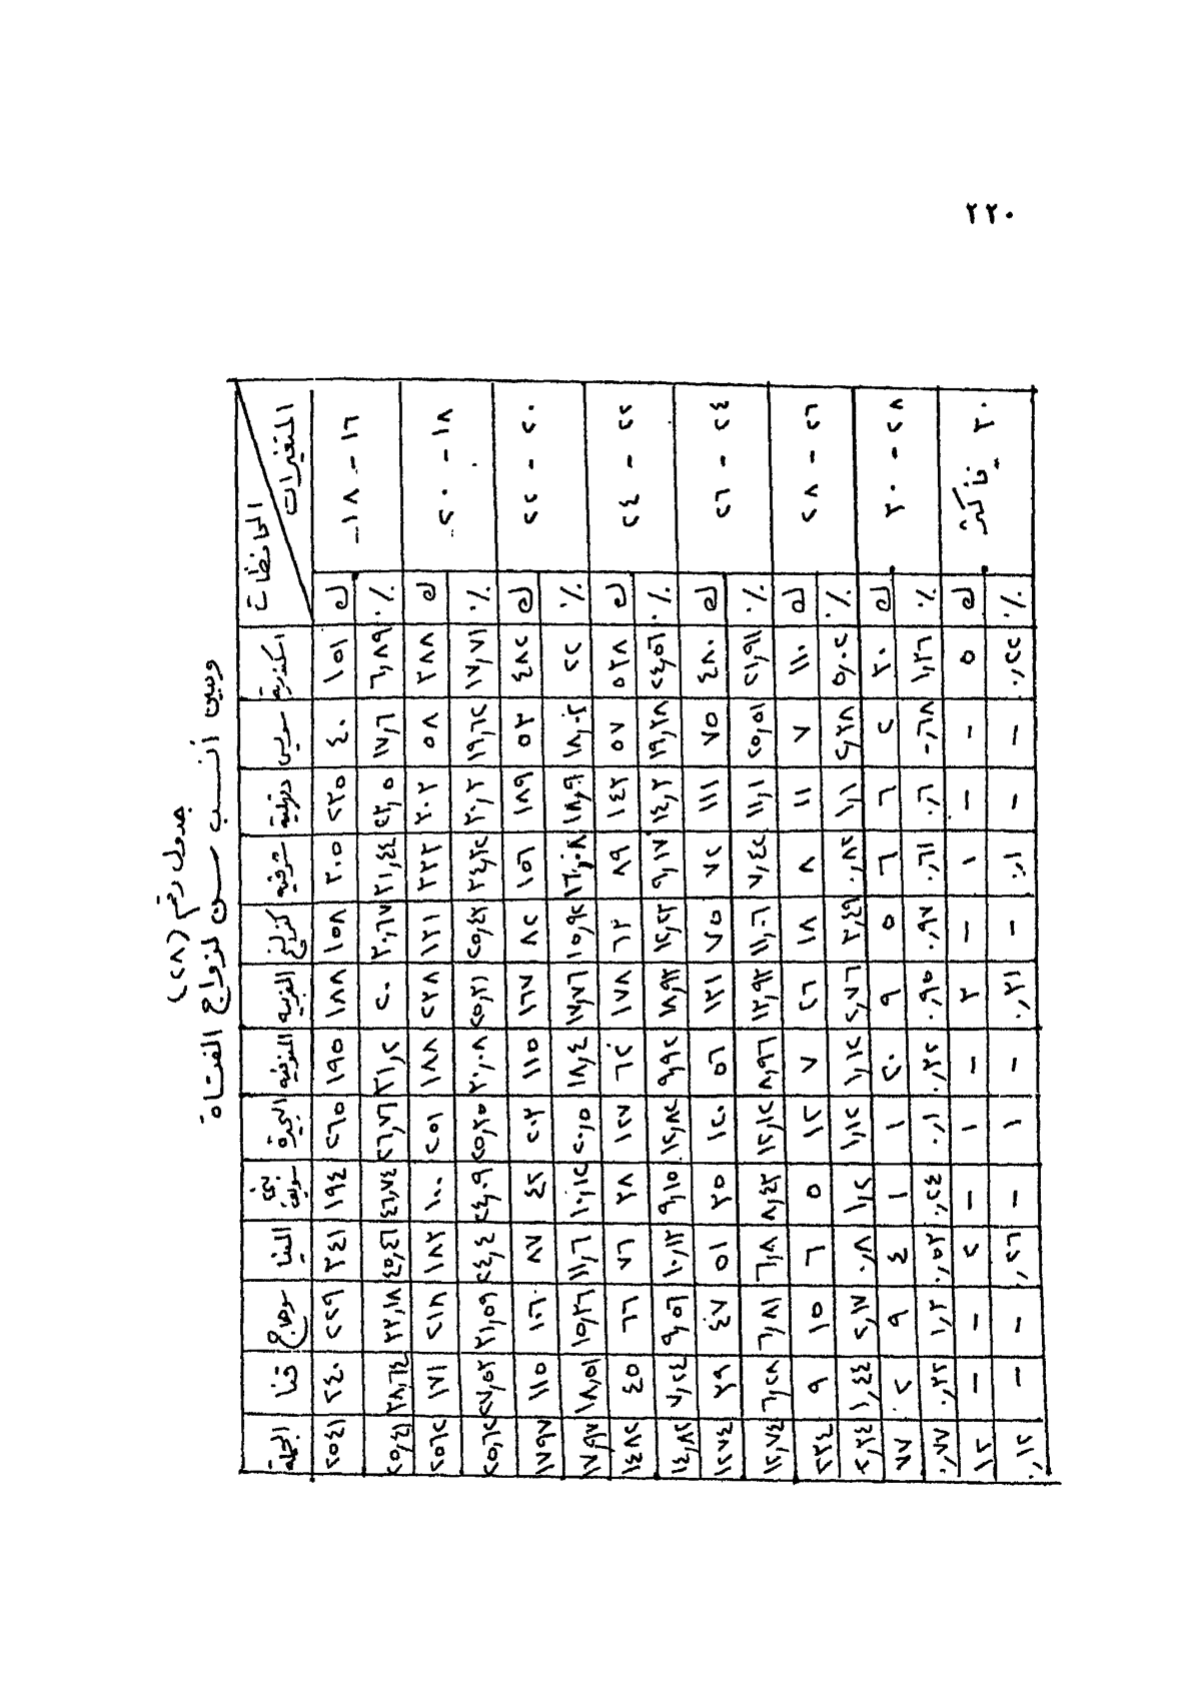 ٢٢٠
جدول رقم (٢٨)
ويبين أنسب سن لزواج الفتاة
المتغيرات المحافظات اسكندرية سويس دقهلية شرقية كفر الشيخ الغربية المنوفية البحيرة بنى سويف المنيا سوهاج قنا الجملة
١٦ - ١٨ ك ١٥١ ٤٠ ٢٣٥ ٣٠٥ ١٥٨ ١٨٨ ١٩٥ ٢٦٥ ١٩٤ ٣٤١ ٢٢٩ ٢٤٠ ٢٥٤١
٪ ٦,٨٩ ١٧,٦ ٢٣,٥ ٣١,٤٤ ٣٠,٦٧ ٢٠ ٣١,٢ ٢٦,٧٦ ٤٦,٧٤ ٤٥,٤٦ ٣٣,١٨ ٣٨,٦٤ ٢٥,٤١
١٨ - ٢٠ ك ٣٨٨ ٥٨ ٣٠٣ ٣٣٣ ١٣١ ٢٣٨ ١٨٨ ٢٥١ ١٠٠ ١٨٣ ٢١٨ ١٧١ ٢٥٦٢
٪ ١٧,٧١ ١٩,٦٢ ٣٠,٣ ٣٤,٣٢ ٢٥,٤٣ ٢٥,٣١ ٣٠,٠٨ ٢٥,٣٥ ٢٤,٠٩ ٢٤,٤ ٣١,٥٩ ٢٧,٥٣ ٢٥,٦٢
٢٠ - ٢٢ ك ٤٨٢ ٥٣ ١٨٩ ١٥٦ ٨٢ ١٦٧ ١١٥ ٢٠٣ ٤٢ ٨٧ ١٠٦ ١١٥ ١٧٩٧
٪ ٢٢ ١٨,٠٣ ١٨,٩ ١٦,٠٨ ١٥,٩٢ ١٧,٧٦ ١٨,٤ ٢٠,٥ ١٠,١٢ ١١,٦ ١٥,٣٦ ١٨,٥١ ١٧,٩٧
٢٢ - ٢٤ ك ٥٣٨ ٥٧ ١٤٣ ٨٩ ٦٣ ١٧٨ ٦٢ ١٢٧ ٣٨ ٧٦ ٦٦ ٤٥ ١٤٨٢
٪ ٢٤,٥٦ ١٩,٣٨ ١٤,٣ ٩,١٧ ١٢,٢٣ ١٨,٩٣ ٩,٩٢ ١٢,٨٢ ٩,١٥ ١٠,١٣ ٩,٥٦ ٧,٢٤ ١٤,٨٢
٢٤ - ٢٦ ك ٤٨٠ ٧٥ ١١١ ٧٢ ٥٧ ١٣١ ٥٦ ١٢٠ ٣٥ ٥١ ٤٧ ٣٩ ١٢٧٤
٪ ٢١,٩١ ٢٥,٥١ ١١,١ ٧,٤٢ ١١,٠٦ ١٣,٩٣ ٨,٩٦ ١٢,١٢ ٨,٤٣ ٦,٨ ٦,٨١ ٦,٢٨ ١٢,٧٤
٢٦ - ٢٨ ك ١١٠ ٧ ١١ ٨ ١٨ ٢٦ ٧ ١٢ ٥ ٦ ١٥ ٩ ٢٣٤
٪ ٥,٠٢ ٢,٣٨ ١,١ ٠,٨٢ ٣,٤٩ ٢,٧٦ ١,١٢ ١,١٢ ١,٢ ٠,٨ ٢,١٧ ١,٤٤ ٢,٣٤
٢٨ - ٣٠ ك ٣٠ ٢ ٦ ٦ ٥ ٩ ٢ ١ ١ ٤ ٩ ٢ ٧٧
٪ ١,٣٦ ٠,٦٨ ٠,٦ ٠,٦١ ٠,٩٧ ٠,٩٥ ٠,٣٢ ٠,١ ٠,٢٤ ٠,٥٣ ١,٣ ٠,٣٢ ٠,٧٧
٣٠ فأكثر ك ٥ - - ١ - ٣ - ١ - ٢ - - ١٣
٪ ٠,٢٢ - - ٠,١ - ٠,٣١ - ١ - ٠,٢٦ - - ٠,١٣